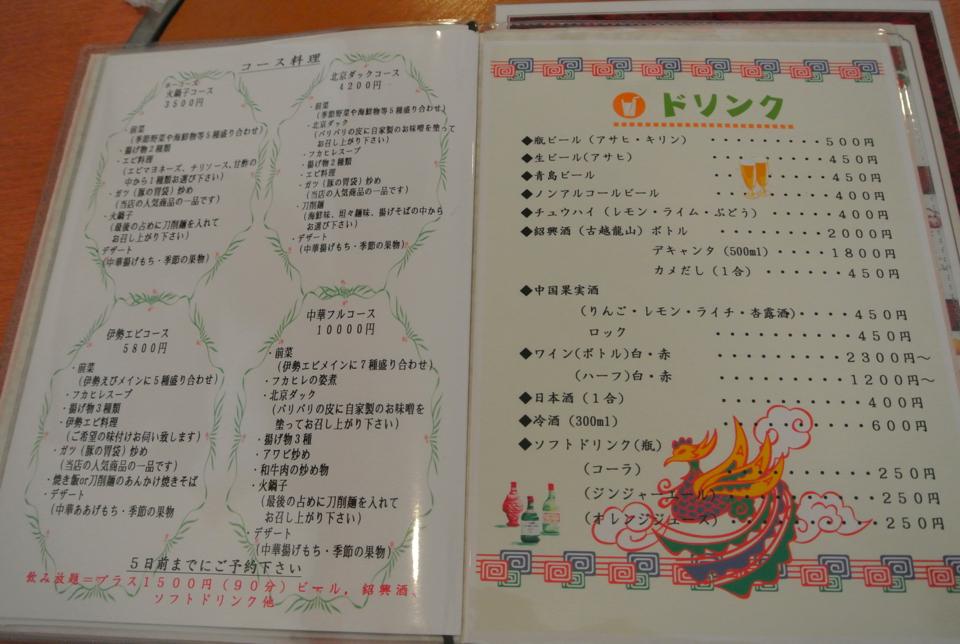 コース料理
ホーコーズ
火鍋子コース
3500円
・前菜
(季節野菜や海鮮物等5種盛り合わせ)
・揚げ物2種類
・エビ料理
(エビマヨネーズ、チリソース、甘酢の
中から1種類お選び下さい)
・ガツ(豚の胃袋)炒め
(当店の人気商品の一品です)
・火鍋子
(最後の占めに刀削麺を入れて
お召し上がり下さい)
デザート
(中華揚げもち・季節の果物)
北京ダックコース
4200円
・前菜
(季節野菜や海鮮物等5種盛り合わせ)
・北京ダック
(パリパリの皮に自家製のお味噌を塗って
お召し上がり下さい)
・フカヒレスープ
・揚げ物2種類
・エビ料理
・ガツ(豚の胃袋)炒め
(当店の人気商品の一品です)
・刀削麺
(海鮮味、坦々麺味、揚げそばの中から
お選び下さい)
・デザート
(中華揚げもち・季節の果物)
伊勢エビコース
5800円
・前菜
(伊勢えびメインに5種盛り合わせ)
・フカヒレスープ
・揚げ物3種類
・伊勢エビ料理
(ご希望の味付けお伺い致します)
・ガツ(豚の胃袋)炒め
(当店の人気商品の一品です)
・焼き飯or刀削麺のあんかけ焼きそば
・デザート
(中華ああげもち・季節の果物
中華フルコース
10000円
・前菜
(伊勢エビメインに7種盛り合わせ)
・フカヒレの姿煮
・北京ダック
(パリパリの皮に自家製のお味噌を
塗ってお召し上がり下さい)
・揚げ物3種
・アワビ炒め
・和牛肉の炒め物
・火鍋子
(最後の占めに刀削麺を入れて
お召し上がり下さい)
デザート
(中華揚げもち・季節の果物)
5日前までにご予約下さい
飲み放題=プラス1500円(90分)ビール,紹興酒、
ソフトドリンク他
ドリンク
◆瓶ビール(アサヒ・キリン) ・・・・・・・・・・500円
◆生ビール(アサヒ) ・・・・・・・・・・450円
◆青島ビール ・・・・・・・・・・450円
◆ノンアルコールビール ・・・・・・・・・・400円
◆チュウハイ(レモン・ライム・ぶどう) ・・・・・・400円
◆紹興酒(古越龍山)ボトル ・・・・・・・・2000円
デキャンタ(500ml)・・・・1800円
カメだし(1合) ・・・・・・450円
◆中国果実酒
(りんご・レモン・ライチ・杏露酒)・・・・450円
ロック ・・・・・・・・・・450円
◆ワイン(ボトル)白・赤 ・・・・・・・・・2300円~
(ハーフ)白・赤 ・・・・・・・・・1200円~
◆日本酒(1合) ・・・・・・・・・・400円
◆冷酒(300ml) ・・・・・・・・・・600円
◆ソフトドリンク(瓶)
(コーラ) ・・・・・・・・・・250円
(ジンジャーエール) ・・・・・・・・・・250円
(オレンジジュース)・・・・・・・・・・250円